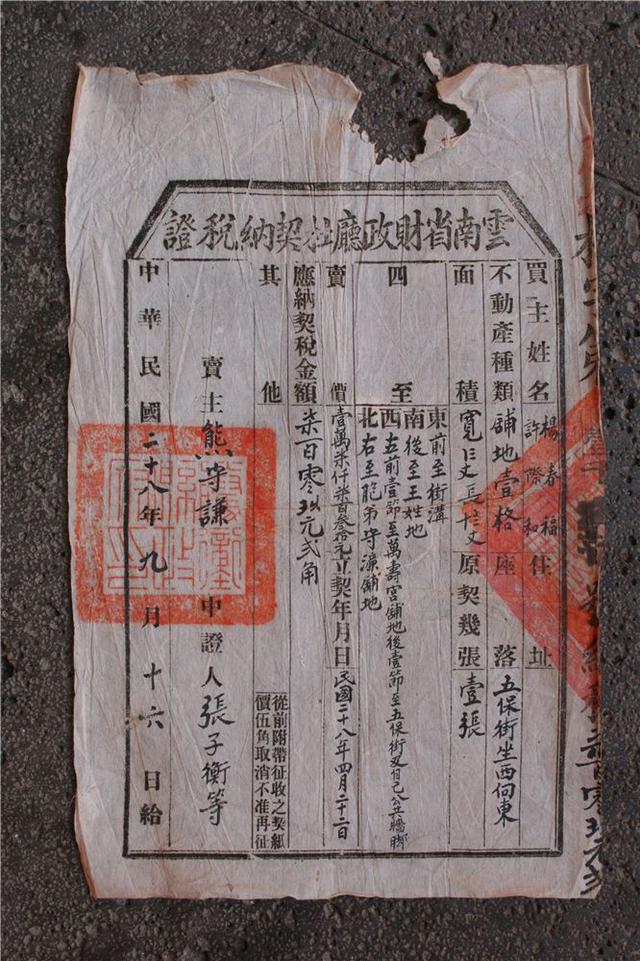 雲南省財政廳杜契納稅證
買主姓名 楊春福 許際和 住址
不動產種類 舖地壹格 座落 五保街坐西向東
面積 寬 丈長 丈 原契幾張 壹張
四至
東前至街溝
南後至王姓地
西左前壹節至萬壽宮舖地後壹節至五保街及自己公共牆腳
北右至胞弟守濂舖地
賣價 壹萬柒仟柒百叁拾元 立契年月日 民國二十八年四月二十二日
應納契稅金額 柒百零玖元弍角
其他
從前附帶征收之契紙
價伍角取消不准再征
賣主熊守謙 中證人 張子衡等
中華民國二十八年九月十六日給